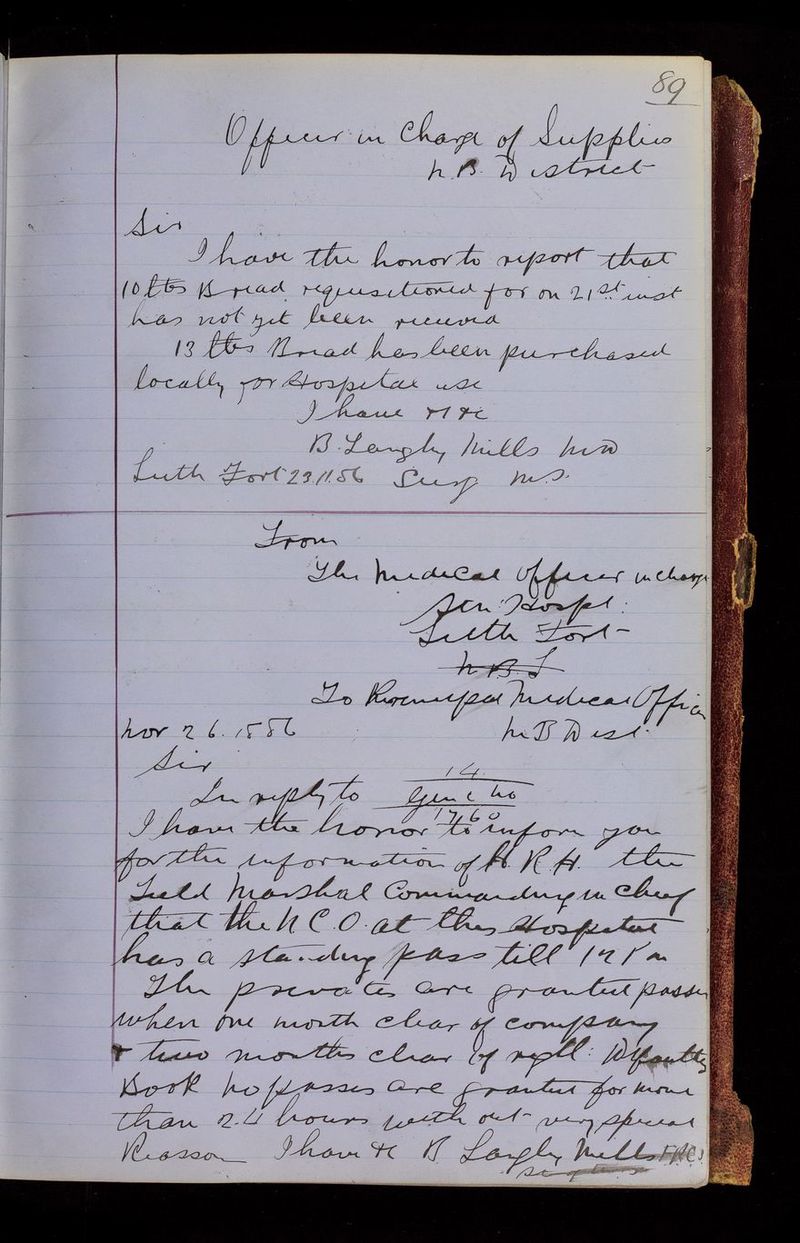 89
Officer in Charge of Supplies
N.B. District
Sir
I have the honor to report that
10 lbs Bread requisitioned for on 21st inst
has not yet been received
13 lbs Bread has been purchased
locally for Hospital use
I have &c
B. Langley Mills
Leith Fort 23.11.86 Surg M.S.
From
The Medical Officer in charge
Stn Hospl:
Leith Fort
N B
To Principal Medical Officer
Nov 26. 1886 N B Dist.
Sir
14
In reply to Genl No
1760
I have the honor to inform you
for the information of H. R. H. the
Field Marshal Commanding in Chief
that the N C. O. at this Hospital
has a standing pass till
The privates are granted passes
when one month clear of company
& two months clear of regtl: Defaulters
Book No passes are granted for more
than 24 hours with out very special
Reason I have &c B Langley Mills